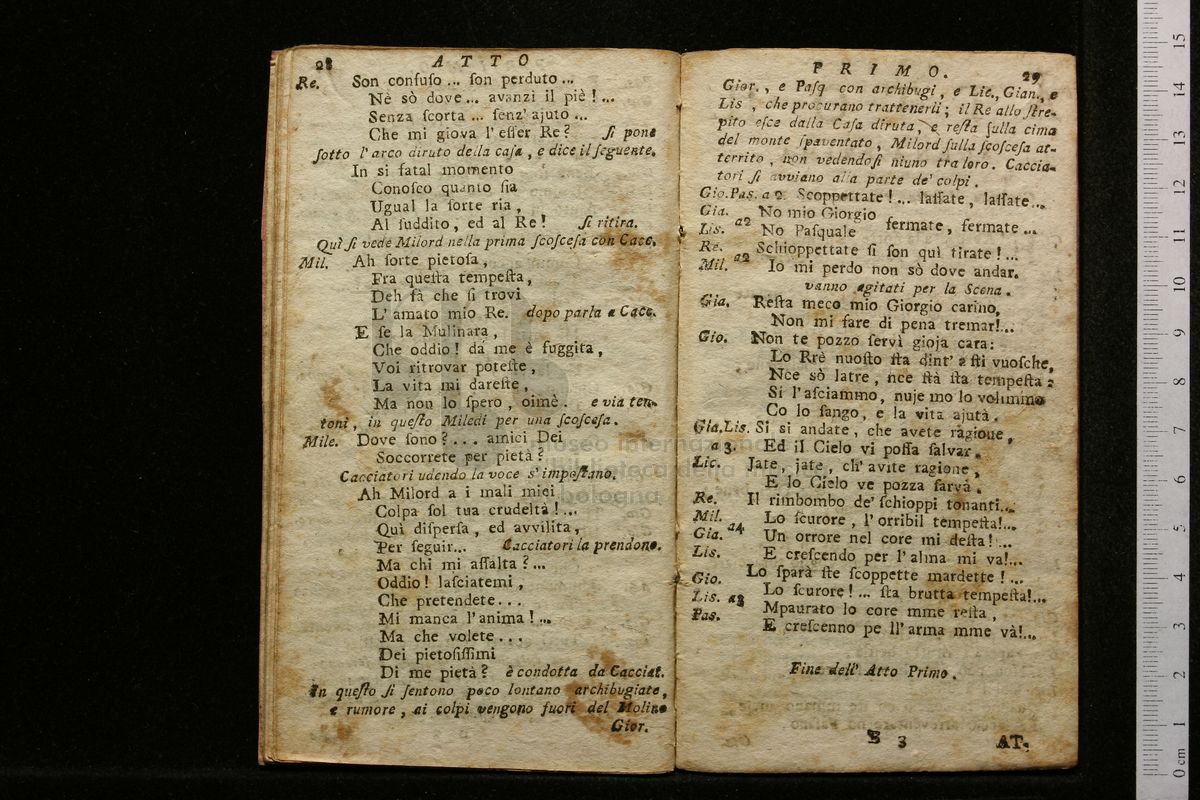 28 ATTO
Re. Son confuſo ... ſon perduto ...
Nè sò dove ... avanzi il piè ! ...
Senza ſcorta ... ſenz' ajuto ...
Che mi giova l' eſſer Re ? ſi pone
ſotto l' arco diruto della caſa , e dice il ſeguente.
In si fatal momento
Conoſco quanto ſia
Ugual la ſorte ria ,
Al ſuddito , ed al Re ! ſi ritira.
Quì ſi vede Milord nella prima ſcoſceſa con Cacc.
Mil. Ah ſorte pietoſa ,
Fra queſta tempeſta ,
Deh fà che ſi trovi
L' amato mio Re. dopo parla a Cacc.
E ſe la Mulinara ,
Che oddio ! da me è fuggita ,
Voi ritrovar poteſte ,
La vita mi dareſte ,
Ma non lo ſpero , oimè . e via ten-
toni , in queſto Miledi per una ſcoſceſa .
Mile. Dove ſono ? ... amici Dei
Soccorrete per pietà ?
Cacciatori udendo la voce s' impoſtano.
Ah Milord a i mali miei
Colpa ſol tua crudeltà ! ...
Quì diſperſa , ed avvilita ,
Per ſeguir... Cacciatori la prendono.
Ma chi mi aſſalta ? ...
Oddio ! laſciatemi ,
Che pretendete ...
Mi manca l' anima ! ...
Ma che volete ...
Dei pietoſiſſimi
Di me pietà ? è condotta da Cacciat.
In queſto ſi ſentono poco lontano archibugiate ,
e rumore , ai colpi vengono fuori del Molino
Gior.
PRIMO. 29
Gior. , e Paſq con archibugi , e Lic., Gian., e
Lis , che procurano trattenerli ; il Re allo ſtre-
pito eſce dalla Caſa diruta , e reſta ſulla cima
del monte ſpaventato , Milord ſulla ſcoſceſa at-
territo , non vedendoſi niuno tra loro. Caccia-
tori ſi avviano alla parte de' colpi .
Gio.Pas. a 2. Scoppettate ! ... laſſate , laſſate ...
Gia. No mio Giorgio
Lis. a2 No Paſquale fermate , fermate ...
Re. Schioppettate ſi ſon quì tirate ! ...
Mil. a2 Io mi perdo non sò dove andar.
vanno agitati per la Scena .
Gia. Reſta meco mio Giorgio carino,
Non mi fare di pena tremar! ...
Gio. Non te pozzo ſervì gioja cara :
Lo Rrè nuoſto ſta dint' a ſti vuoſche,
Nce sò latre , nce ſtà ſta tempeſta :
Si l' aſciammo , nuje mo lo volimmo
Co lo ſango , e la vita ajutà .
Gia.Lis. Si si andate , che avete ragione ,
a 3. Ed il Cielo vi poſſa ſalvar .
Lic. Jate , jate , ch' avite ragione ,
E lo Cielo ve pozza ſarvà .
Re. Il rimbombo de' ſchioppi tonanti...
Mil. Lo ſcurore , l' orribil tempeſta! ...
Gia. a4 Un orrore nel core mi deſta ! ...
Lis. E creſcendo per l' alma mi va! ...
Gio. Lo sparà ſte ſcoppette mardette ! ...
Lis. a3 Lo ſcurore ! ... ſta brutta tempeſta! ...
Pas. Mpaurato lo core mme reſta ,
E creſcenno pe ll' arma mme và! ...
Fine dell' Atto Primo .
B 3 AT-
museo internazionale
biblioteca della
bologna
0 cm 1 2 3 4 5 6 7 8 9 10 11 12 13 14 15